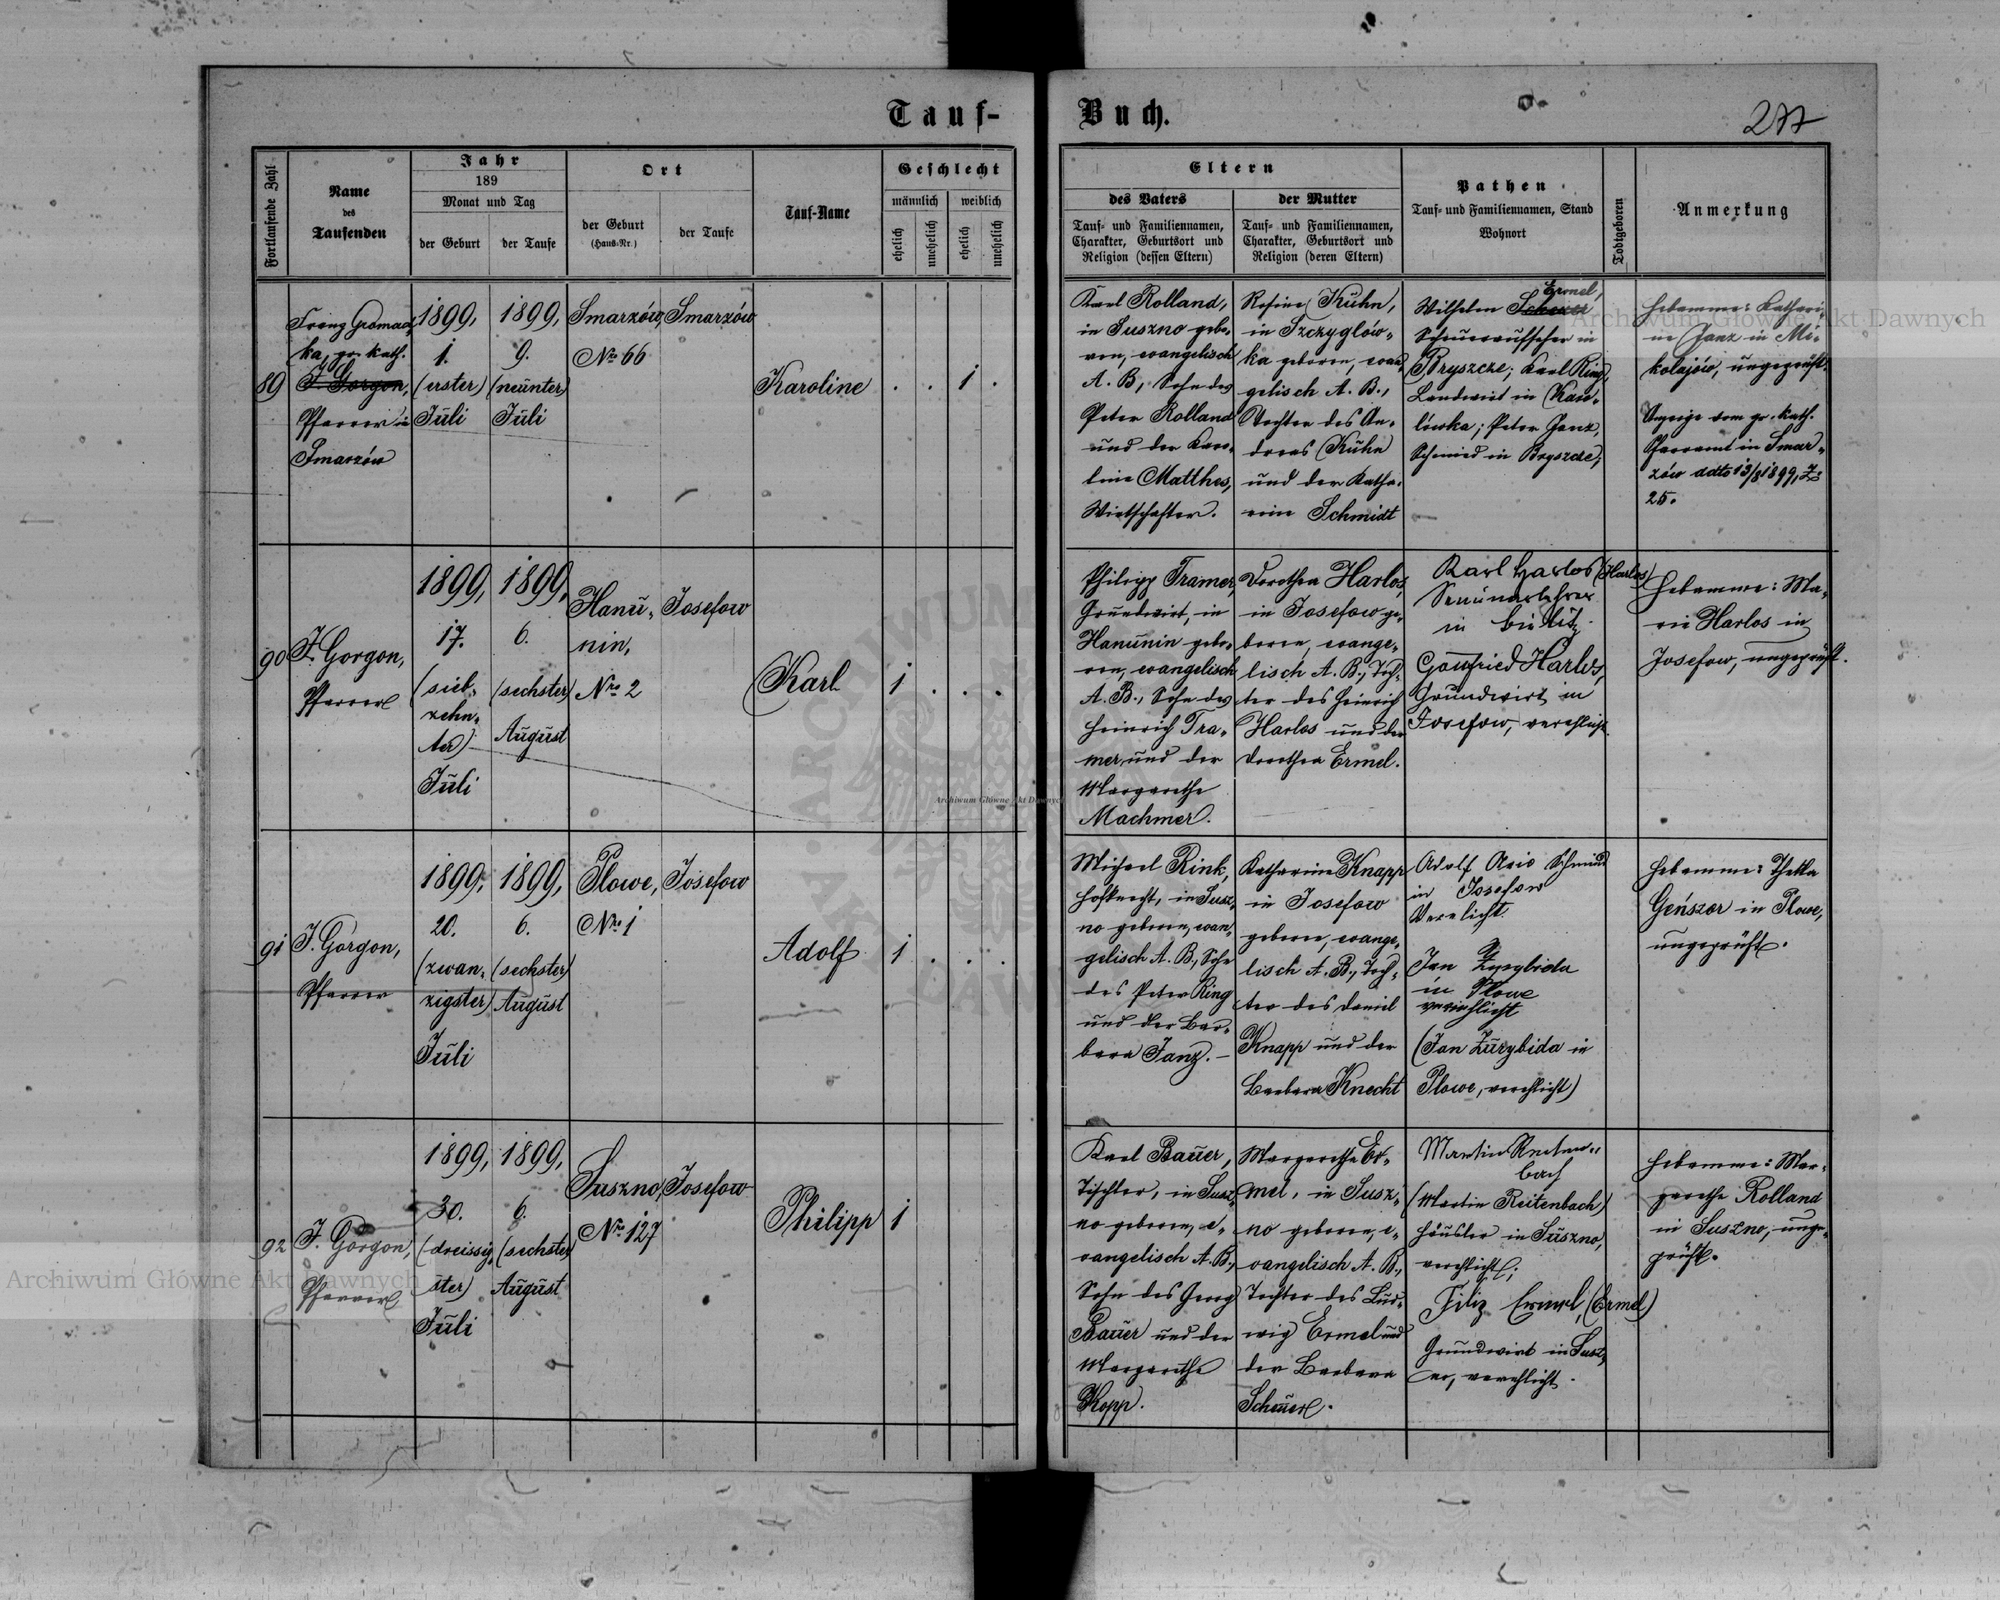 Tauf-
Buch.
277
Fortlaufende Zahl
Name
des
Taufenden
Jahr
189
Monat und Tag
der Geburt
der Taufe
Ort
der Geburt
(Haus-Nr.)
der Taufe
Tauf-Name
Geschlecht
männlich
weiblich
ehelich
unehelich
ehelich
unehelich
Eltern
des Vaters
Tauf- und Familiennamen,
Charakter, Geburtsort und
Religion (dessen Eltern)
der Mutter
Tauf- und Familiennamen,
Charakter, Geburtsort und
Religion (deren Eltern)
Pathen
Tauf- und Familiennamen, Stand
Wohnort
Todtgeboren
Anmerkung
89
ka, gr. kath.
J. Gorgon,
Pfarrer in
Smarzów
1899,
1.
(erster)
Juli
1899,
9.
(neunter)
Juli
Smarzów,
No 66
Smarzów
Karoline
1
Karl Rolland,
in Suszno gebo-
ren, evangelisch
A. B., Sohn des
Peter Rolland
und der Karo-
line Matthes,
Wirtschafter.
Rosina Kühn,
in Szczyglow-
ka geboren, evan-
gelisch A. B.,
Tochter des An-
dreas Kühn
und der Katha-
rina Schmidt
Ermel,
Wilhelm Scherer
in
Bryszcze; Karl Ring,
Landwirt in Kaw-
lówka; Peter Ganz,
Schmied in Bryszcze,
Hebamme: Kathari-
na Ganz in Mi-
kolajów, ungeprüft.
Anzeige vom gr. kath.
Pfarramt in Smar-
zów ddto 13/8 1899, Z
25.
90
J. Gorgon,
Pfarrer
1899,
17.
(sieb-
zehn-
ter)
Juli
1899,
6.
(sechster)
August
Hanu-
nin,
Nro 2
Josefow
Karl
1
Philipp Tramer,
Grundwirt, in
Hanunin gebo-
ren, evangelisch
A. B., Sohn des
Heinrich Tra-
mer und der
Margarethe
Machmer.
Dorothea Harlos,
in Josefow ge-
boren, evange-
lisch A. B., Toch-
ter des Heinrich
Harlos und der
Dorothea Ermel.
Karl Harlos (Harlos)
Seminarlehrer
in Bielitz.
Gottfried Harlos,
Grundwirt in
Josefow, verehlicht.
Hebamme: Ma-
rie Harlos in
Josefow, ungeprüft.
91
J. Gorgon,
Pfarrer
1899,
20.
(zwan-
zigster)
Juli
1899,
6.
(sechster)
August
Plowe,
Nro 1
Josefow
Adolf
1
Michael Rink,
Hofknecht, in Susz-
no geboren, evan-
gelisch A. B., Sohn
des Peter Ring
und der Bar-
bara Janz. -
Katharina Knapp
in Josefow
geboren, evange-
lisch A. B., Toch-
ter des Daniel
Knapp und der
Barbara Knecht
Adolf Schmied
in Josefow
Verelicht
Jan
in Plowe
verehlicht
(Jan Zurybida in
Plowe, verehlicht)
Hebamme: Thekla
Genszor in Plowe,
ungeprüft.
92
J. Gorgon,
Pfarrer
1899,
30.
(dreissig-
ster)
Juli
1899,
6.
(sechster)
August
Suszno,
No 127
Josefow
Philipp
1
Karl Bauer,
Tischler, in Susz-
no geboren, e-
vangelisch A. B.,
Sohn des Georg
Bauer und der
Margarethe
Kopp.
Margarethe Er-
mel, in Susz-
no geboren, e-
vangelisch A. B.,
Tochter des Lud-
wig Ermel und
der Barbara
Scheuer.
Martin
bach
(Martin Reitenbach)
Häusler in Suszno,
verehlicht;
Filip Ermel, (Ermel)
Grundwirt in Susz-
no, verehlicht.
Hebamme: Mar-
garethe Rolland
in Suszno, unge-
prüft.
Archiwum Główne Akt Dawnych
Archiwum Główne Akt Dawnych
Archiwum Główne Akt Dawnych